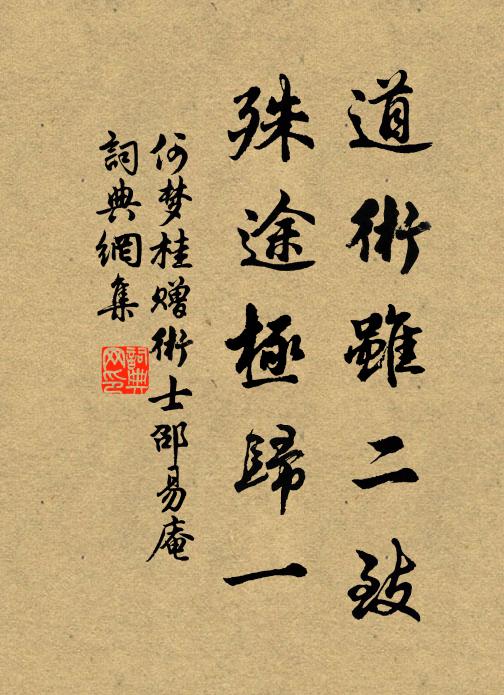 道術雖二致
殊途極歸一
何梦桂赠術士邵易庵
詞典網集
詞典
网印